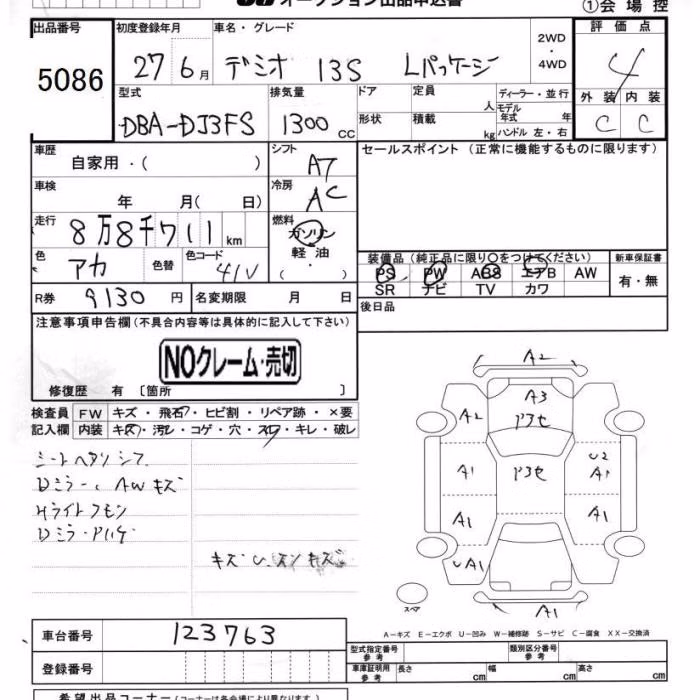 オークション出品申込書
①会場控
出品番号 5086
初度登録年月 27 6月
車名・グレード デミオ 13S Lパッケージ
2WD・4WD
評価点 4
外装 C 内装 C
型式 DBA-DJ3FS
排気量 1300 cc
ドア 形状
定員 人
積載 kg
ディーラー・並行
モデル年式 年
ハンドル 左・右
車歴 自家用・( )
シフト A7
セールスポイント（正常に機能するものに限ります）
車検 年 月( 日)
冷房 AC
走行 8万8千711km
燃料 ガソリン 軽油 ( ・ )
色 アカ 色替 色コード 41V
装備品（純正品に限り○をつけてください）
PS PW ABS エアB AW
SR ナビ TV カワ
新車保証書 有・無
R券 9130円 名変期限 月 日
後日品
注意事項申告欄（不具合内容等は具体的に記入して下さい）
NOクレーム・売切
修復歴 有 〔箇所 〕
検査員記入欄
FW キズ・飛石・ヒビ割・リペア跡・×要
内装 キズ・汚レ・コゲ・穴・スレ・キレ・破レ
シートヘタリ シフ
Dミラー AWキズ
Hライトクモン
Dミラー
キズ
A2
A3
A2 アスセ
A1 アスセ U2 A1
A1 A1
UA1
A1
スペア
A－キズ E－エクボ U－凹み W－補修跡 S－サビ C－腐食 XX－交換済
車台番号 123763
登録番号
型式指定番号 参考
類別区分番号 参考
車庫証明用 参考 長さ cm 幅 cm 高さ cm
希望出品コーナー（コーナーは各会場により異なります）